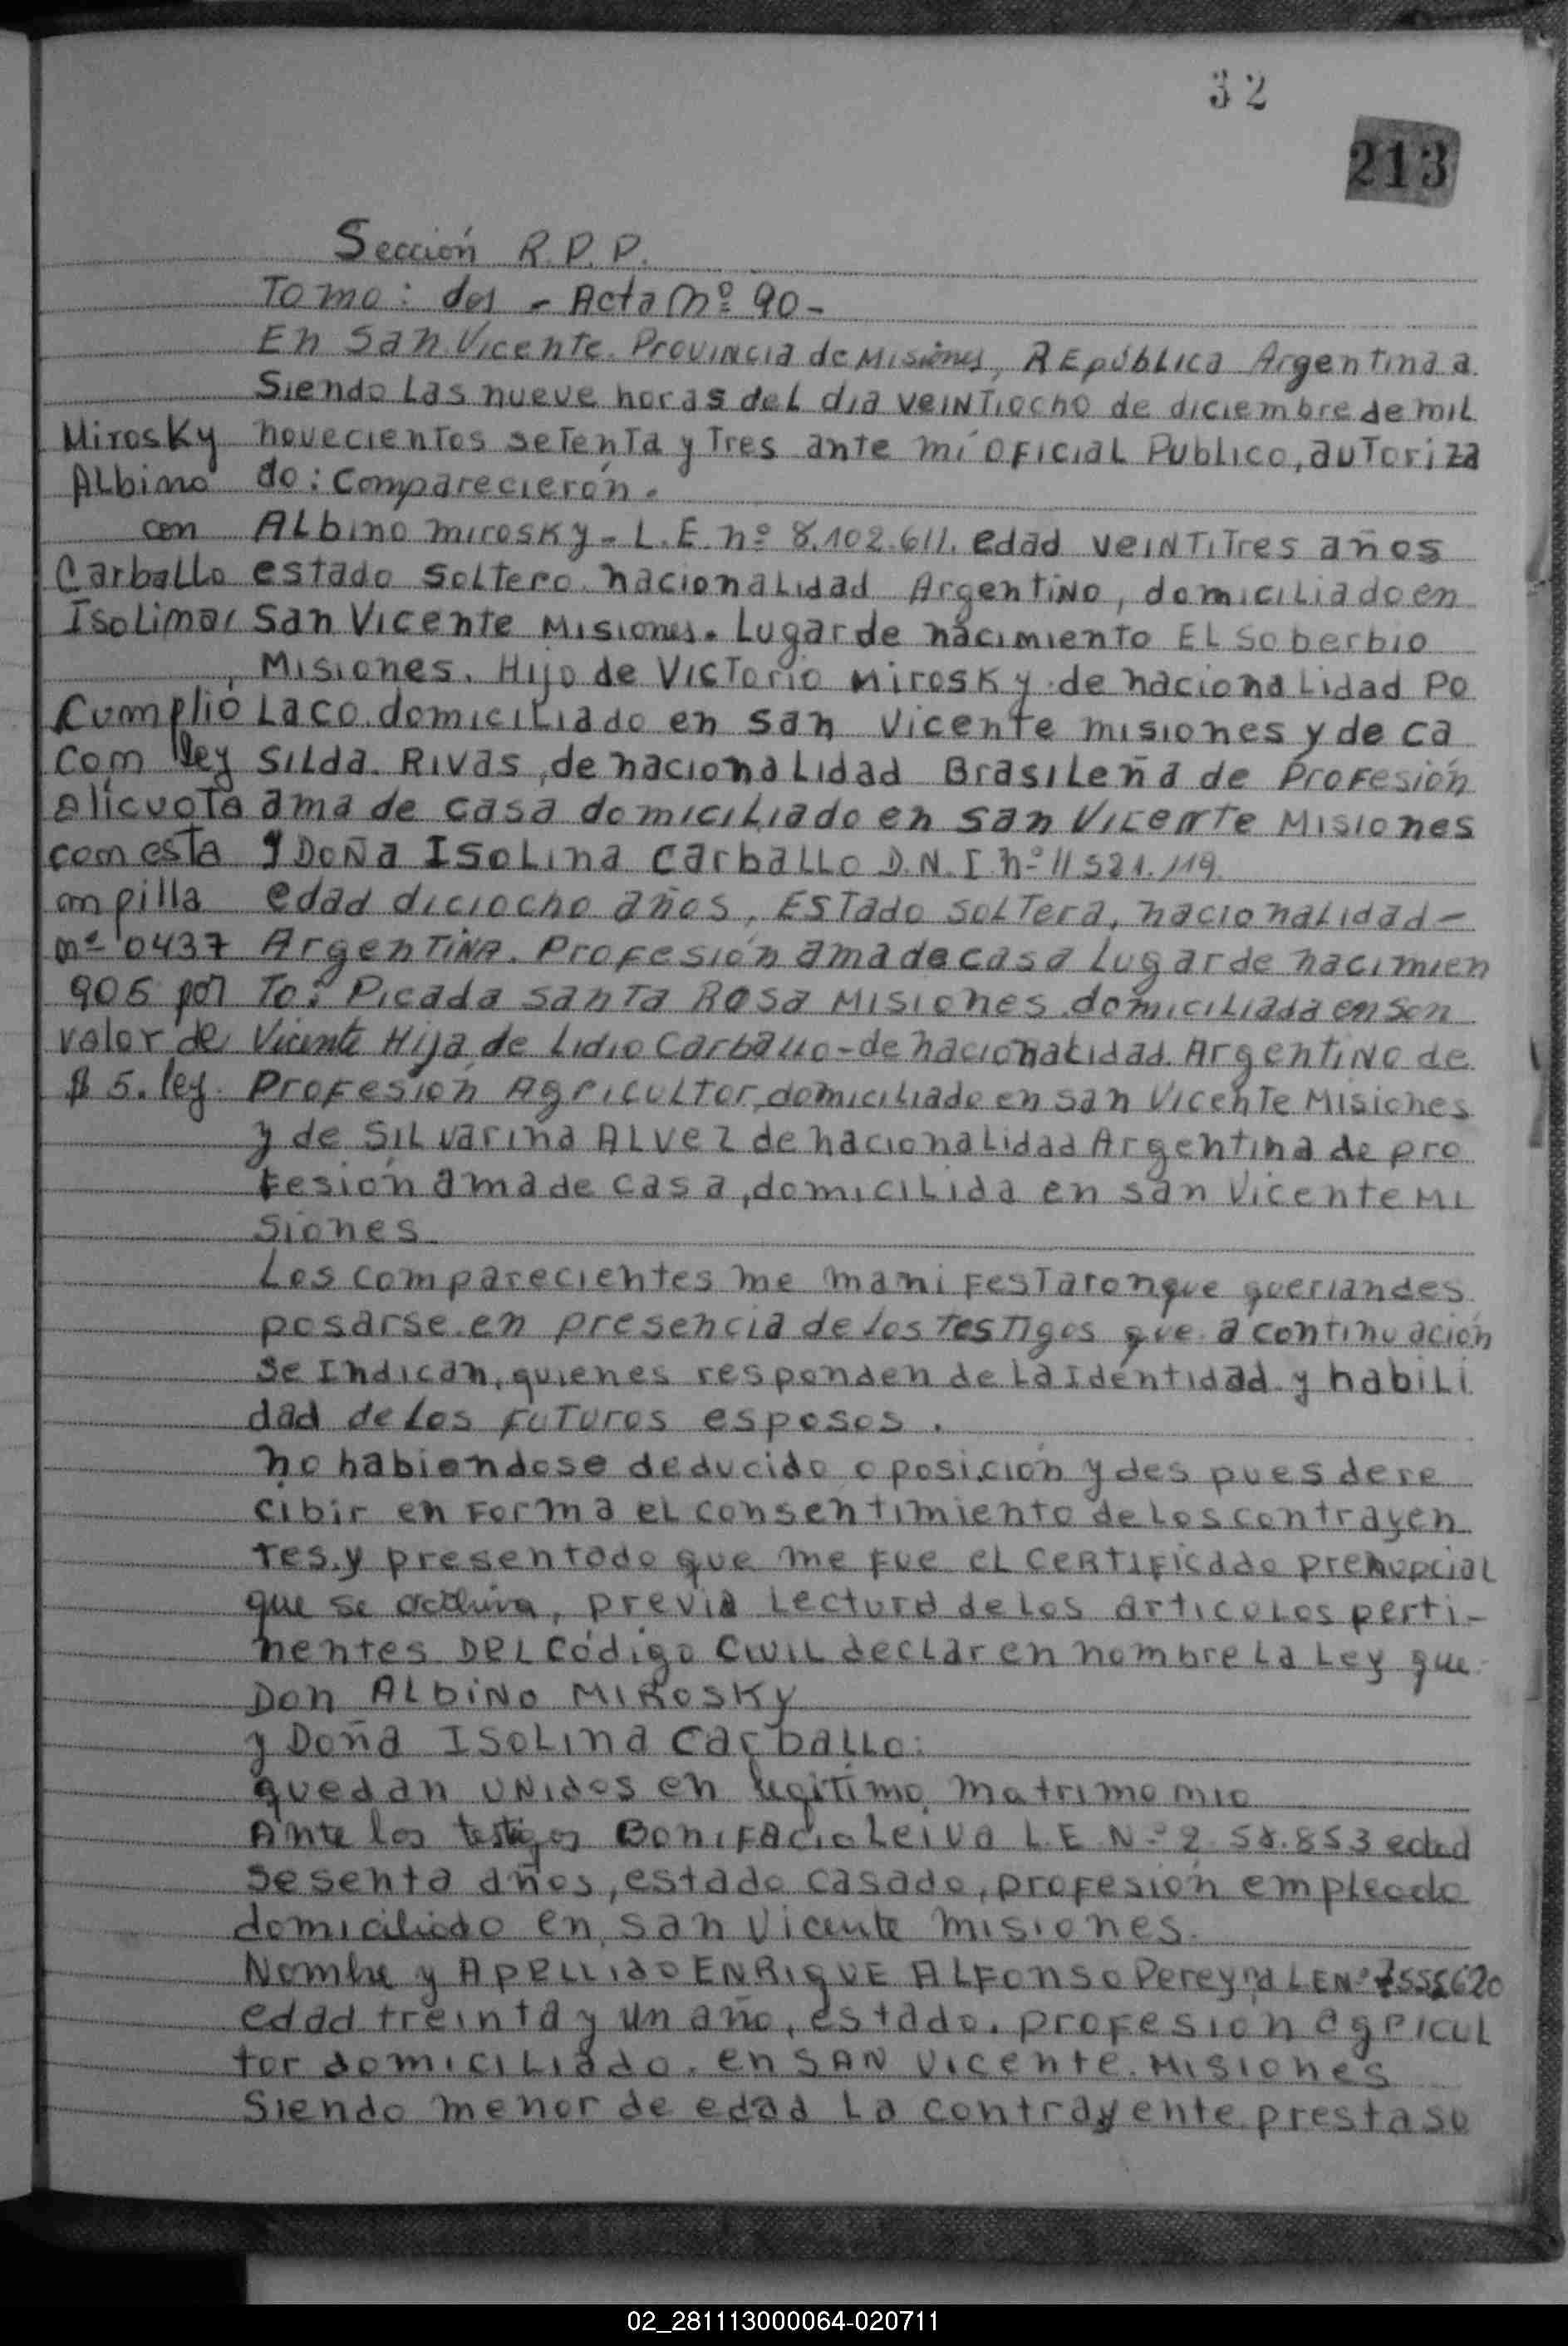 32
213
Sección R.P.P.
Tomo: dos - Acta Nº 90-
En San Vicente. Provincia de Misiones, República Argentina a
Siendo Las nueve horas del dia veintiocho de diciembre de mil
Mirosky novecientos setenta y tres ante mí oficial Publico, autoriza
Albino do: Comparecierón.
con Albino Mirosky - L.E. nº 8.102.611. edad veintitres años
Carballo estado soltero nacionalidad Argentino, domiciliado en
Isolimar San Vicente Misiones. Lugar de nacimiento El Soberbio
Misiones. Hijo de Victorio Mirosky de nacionalidad Po
Cumplió Laco. domiciliado en San Vicente Misiones y de Ca
Com ley Silda. Rivas, de nacionalidad Brasileña de Profesión
alicuota ama de casa domiciliado en San Vicente Misiones
com esta y Doña Isolina Carballo D.N.I. nº 11521.119.
ompilla edad diciocho años, Estado soltera, nacionalidad-
mº 0437 Argentina. Profesión ama de casa Lugar de nacimien
905 por To: Picada Santa Rosa Misiones. domiciliada en San
valor de Vicente Hija de Lidio Carballo - de nacionalidad Argentino de
$ 5. ley. Profesión Agricultor, domiciliado en San Vicente Misiones
y de Silvarina Alvez de nacionalidad Argentina de pro
fesión ama de casa, domicilida en San Vicente Mi
siones
Los comparecientes me manifestaron que querian des
posarse en presencia de los testigos que a continuación
se indican, quienes responden de la identidad y habili
dad de los futuros esposos.
no habiendose deducido oposición y despues de re
cibir en forma el consentimiento de los contrayen
tes. y presentado que me fue el certificado prenupcial
que se, previa Lectura de los articulos perti-
nentes Del Código Civil declar en nombre la Ley que
Don Albino Mirosky
y Doña Isolina Carballo:
quedan unidos en legitimo matrimomio
Ante los testigos Bonifacio Leiva L.E Nº 2.58.853 edad
sesenta años, estado casado, profesión empleado
domiciliado en San Vicente Misiones.
Nombre y Apellido Enrique Alfonso Pereyra L E Nº
edad treinta y un año, estado. profesion agricul
tor domiciliado. en San Vicente. Misiones
Siendo menor de edad la contrayente presta su
02_281113000064-020711